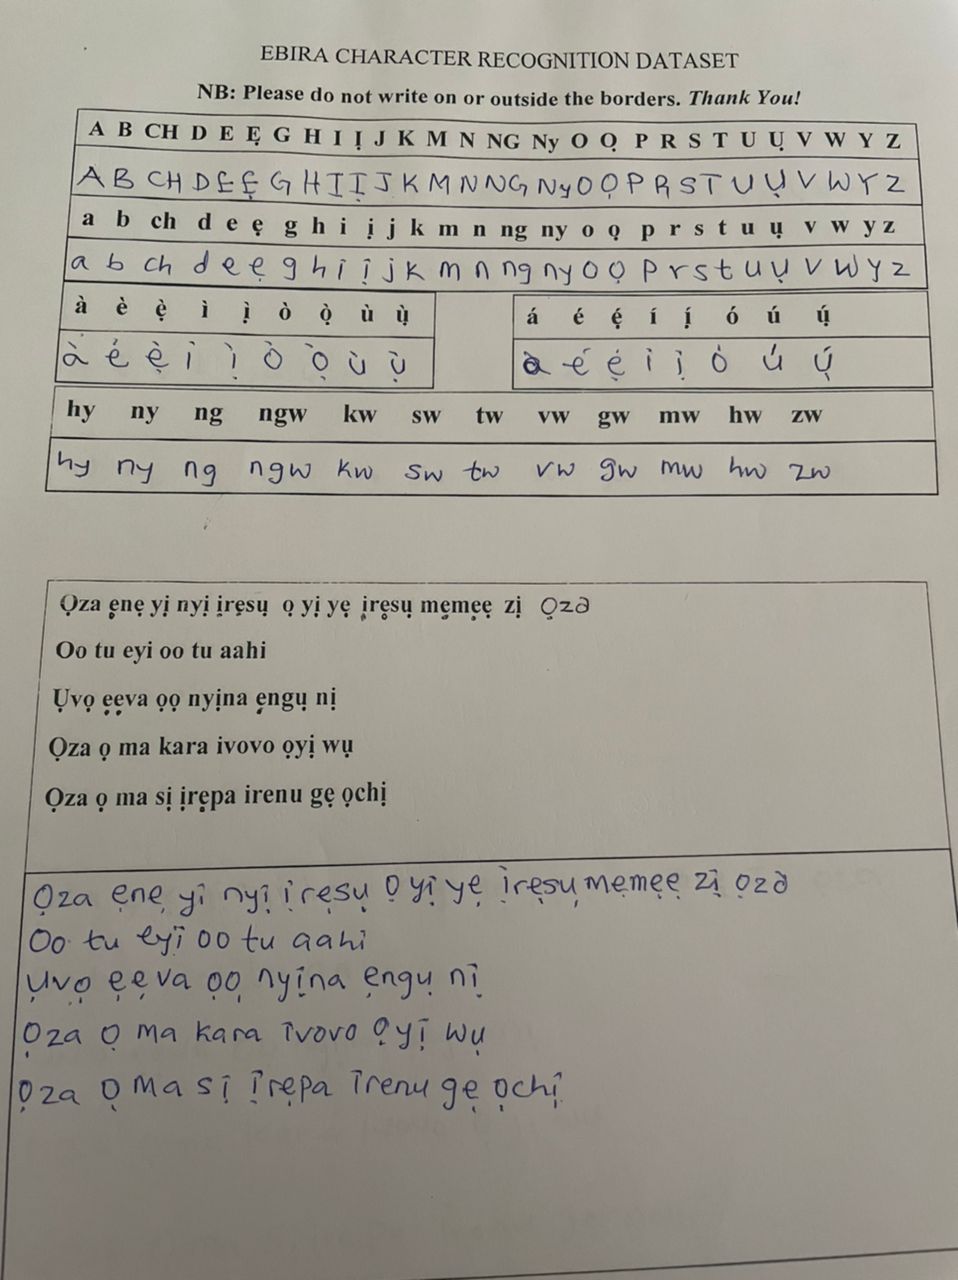 EBIRA CHARACTER RECOGNITION DATASET
NB: Please do not write on or outside the borders. Thank You!
A B CH D E Ẹ G H I Ị J K M N NG Ny O Ọ P R S T U Ụ V W Y Z
A B CH D E Ẹ G H I Ị J K M N NG Ny O Ọ P R S T U Ụ V W Y Z
a b ch d e ẹ g h i ị j k m n ng ny o ọ p r s t u ụ v w y z
a b ch d e ẹ g h i ị j k m n ng ny o ọ p r s t u ụ v w y z
à è ẹ̀ ì ị̀ ò ọ̀ ù ụ̀ á é ẹ́ í ị́ ó ú ụ́
à é ẹ̀ ì ị̀ ò ọ̀ ù ụ̀ à é ẹ́ i ị ó ú ụ́
hy ny ng ngw kw sw tw vw gw mw hw zw
hy ny ng ngw kw sw tw vw gw mw hw zw
Ọza ẹnẹ yị nyị ịrẹsụ ọ yị yẹ ịrẹsụ mẹmẹẹ zị ọza
Oo tu eyi oo tu aahi
Ụvọ ẹẹva ọọ nyịna ẹngụ nị
Ọza ọ ma kara ivovo ọyị wụ
Ọza ọ ma sị ịrẹpa irenu gẹ ọchị
Ọza ẹnẹ yi nyị ịrẹsụ ọ yị yẹ ịrẹsụ mẹmẹẹ zị ọza
Oo tu eyi oo tu aahi
Ụvọ ẹẹva ọọ nyịna ẹngụ nị
Ọza ọ ma kara ivovo ọyị wụ
Ọza ọ ma sị ịrẹpa irenu gẹ ọchị